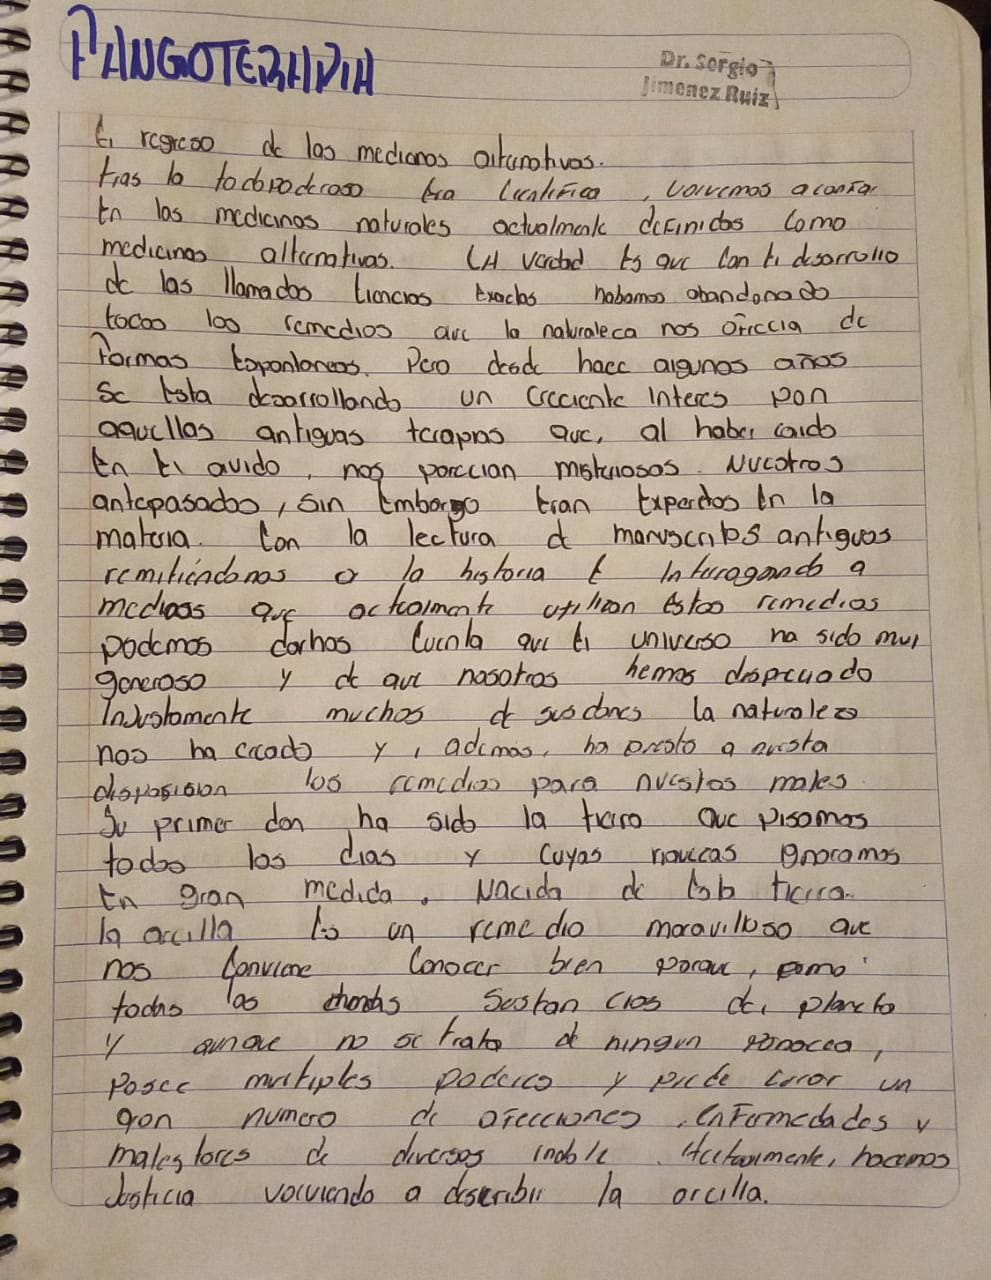 PANGOTERAPIA
Dr. Sergio
Jimenez Ruiz
El regreso de las medicinas alternativas.
tras la todopoderosa Era Cientifica, volvemos a confiar
En las medicinas naturales actualmente definidas como
medicinas alternativas. LA verdad Es que Con El desarrollo
de las llamadas Ciencias Exactas habamos abandonado
todos los remedios que la naturaleca nos ofreccia de
Formas Espontaneas. Pero desde hace algunos años
Se Esta desarrollando un Creciente Interes pon
aquellas antiguas terapias que, al haber caido
En El ovido, nos parccian misteriosas. Nuestros
antepasados, sin Embargo Eran Expertos En la
materia. Con la lectura d manuscritos antiguos
remitiéndonos a la historia E Interrogando a
medicos que actualmente utilizan Estos remedios
podemos darnos Cuenta que El universo ha sido muy
generoso y de que nosotros hemos despreciado
Injustamente muchos d sus dones la naturaleza
nos ha creado y, ademas, ha puesto a nuesta
disposision los remedios para nuestos males
Su primer don ha sido la tierra que pisamos
todos los dias y cuyas riquezas Ignoramos
En gran medida. Nacida de Esta tierra.
la arcilla Es un remedio maravilloso que
nos Conviene Conocer bien porque, como
todas las sustancias del planeta
y aunque no se trata d ningun panacea,
Posee multiples poderes y puede Curar un
gran numero de afecciones, Enfermedades y
malestares de diversos indole. Actualmente, hacemos
Justicia volviendo a describir la arcilla.